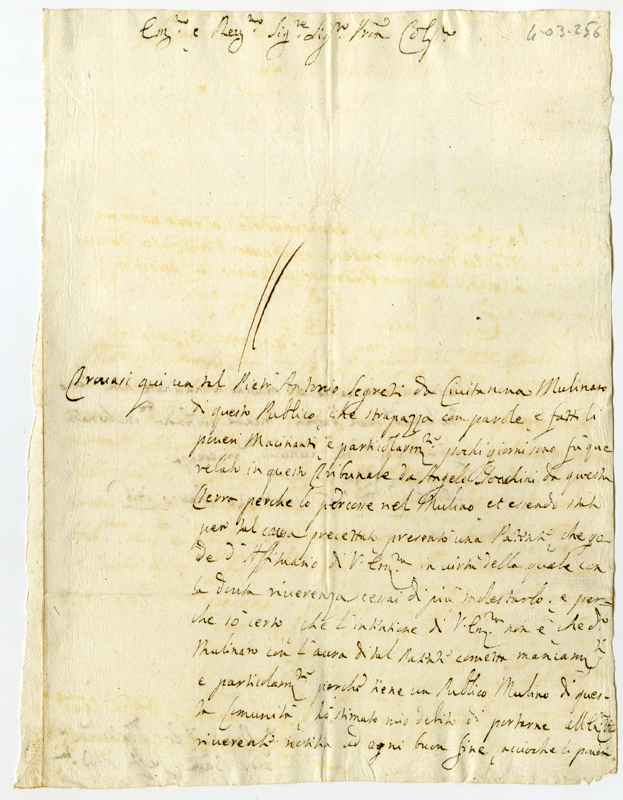 Em.mo e Rev.mo Sig.re Sig.re P.ron Col.mo
4-03-256
Trovasi qui un tal Pietr' Antonio Segreti da Civitanova Mulinaro
di questo Publico, che strapazza con parole, e fatti li
poveri Macinanti, e particolarm.te pochi giorni sono fù que
relato in questo Tribunale da Angelo da questa
Terra perche lo percosse nel Mulino et essendo stato
per tal causa precettato presentò una Patente che go-
de d'Affittuario di V. Em.za in virtù della quale con
la dovuta riverenza cessai di più molestarlo, e per-
che sò certo che l'intent.ne di V. Em.za non è che d.o
Mulinaro con l'aura di tal Patente cometta mancam.ti
e particolarm.te perche tiene un Publico Mulino di ques-
ta Comunità, hò stimato mio debito di porterne all'Em.za
riverente notitia ad ogni buon fine, accioche li poveri